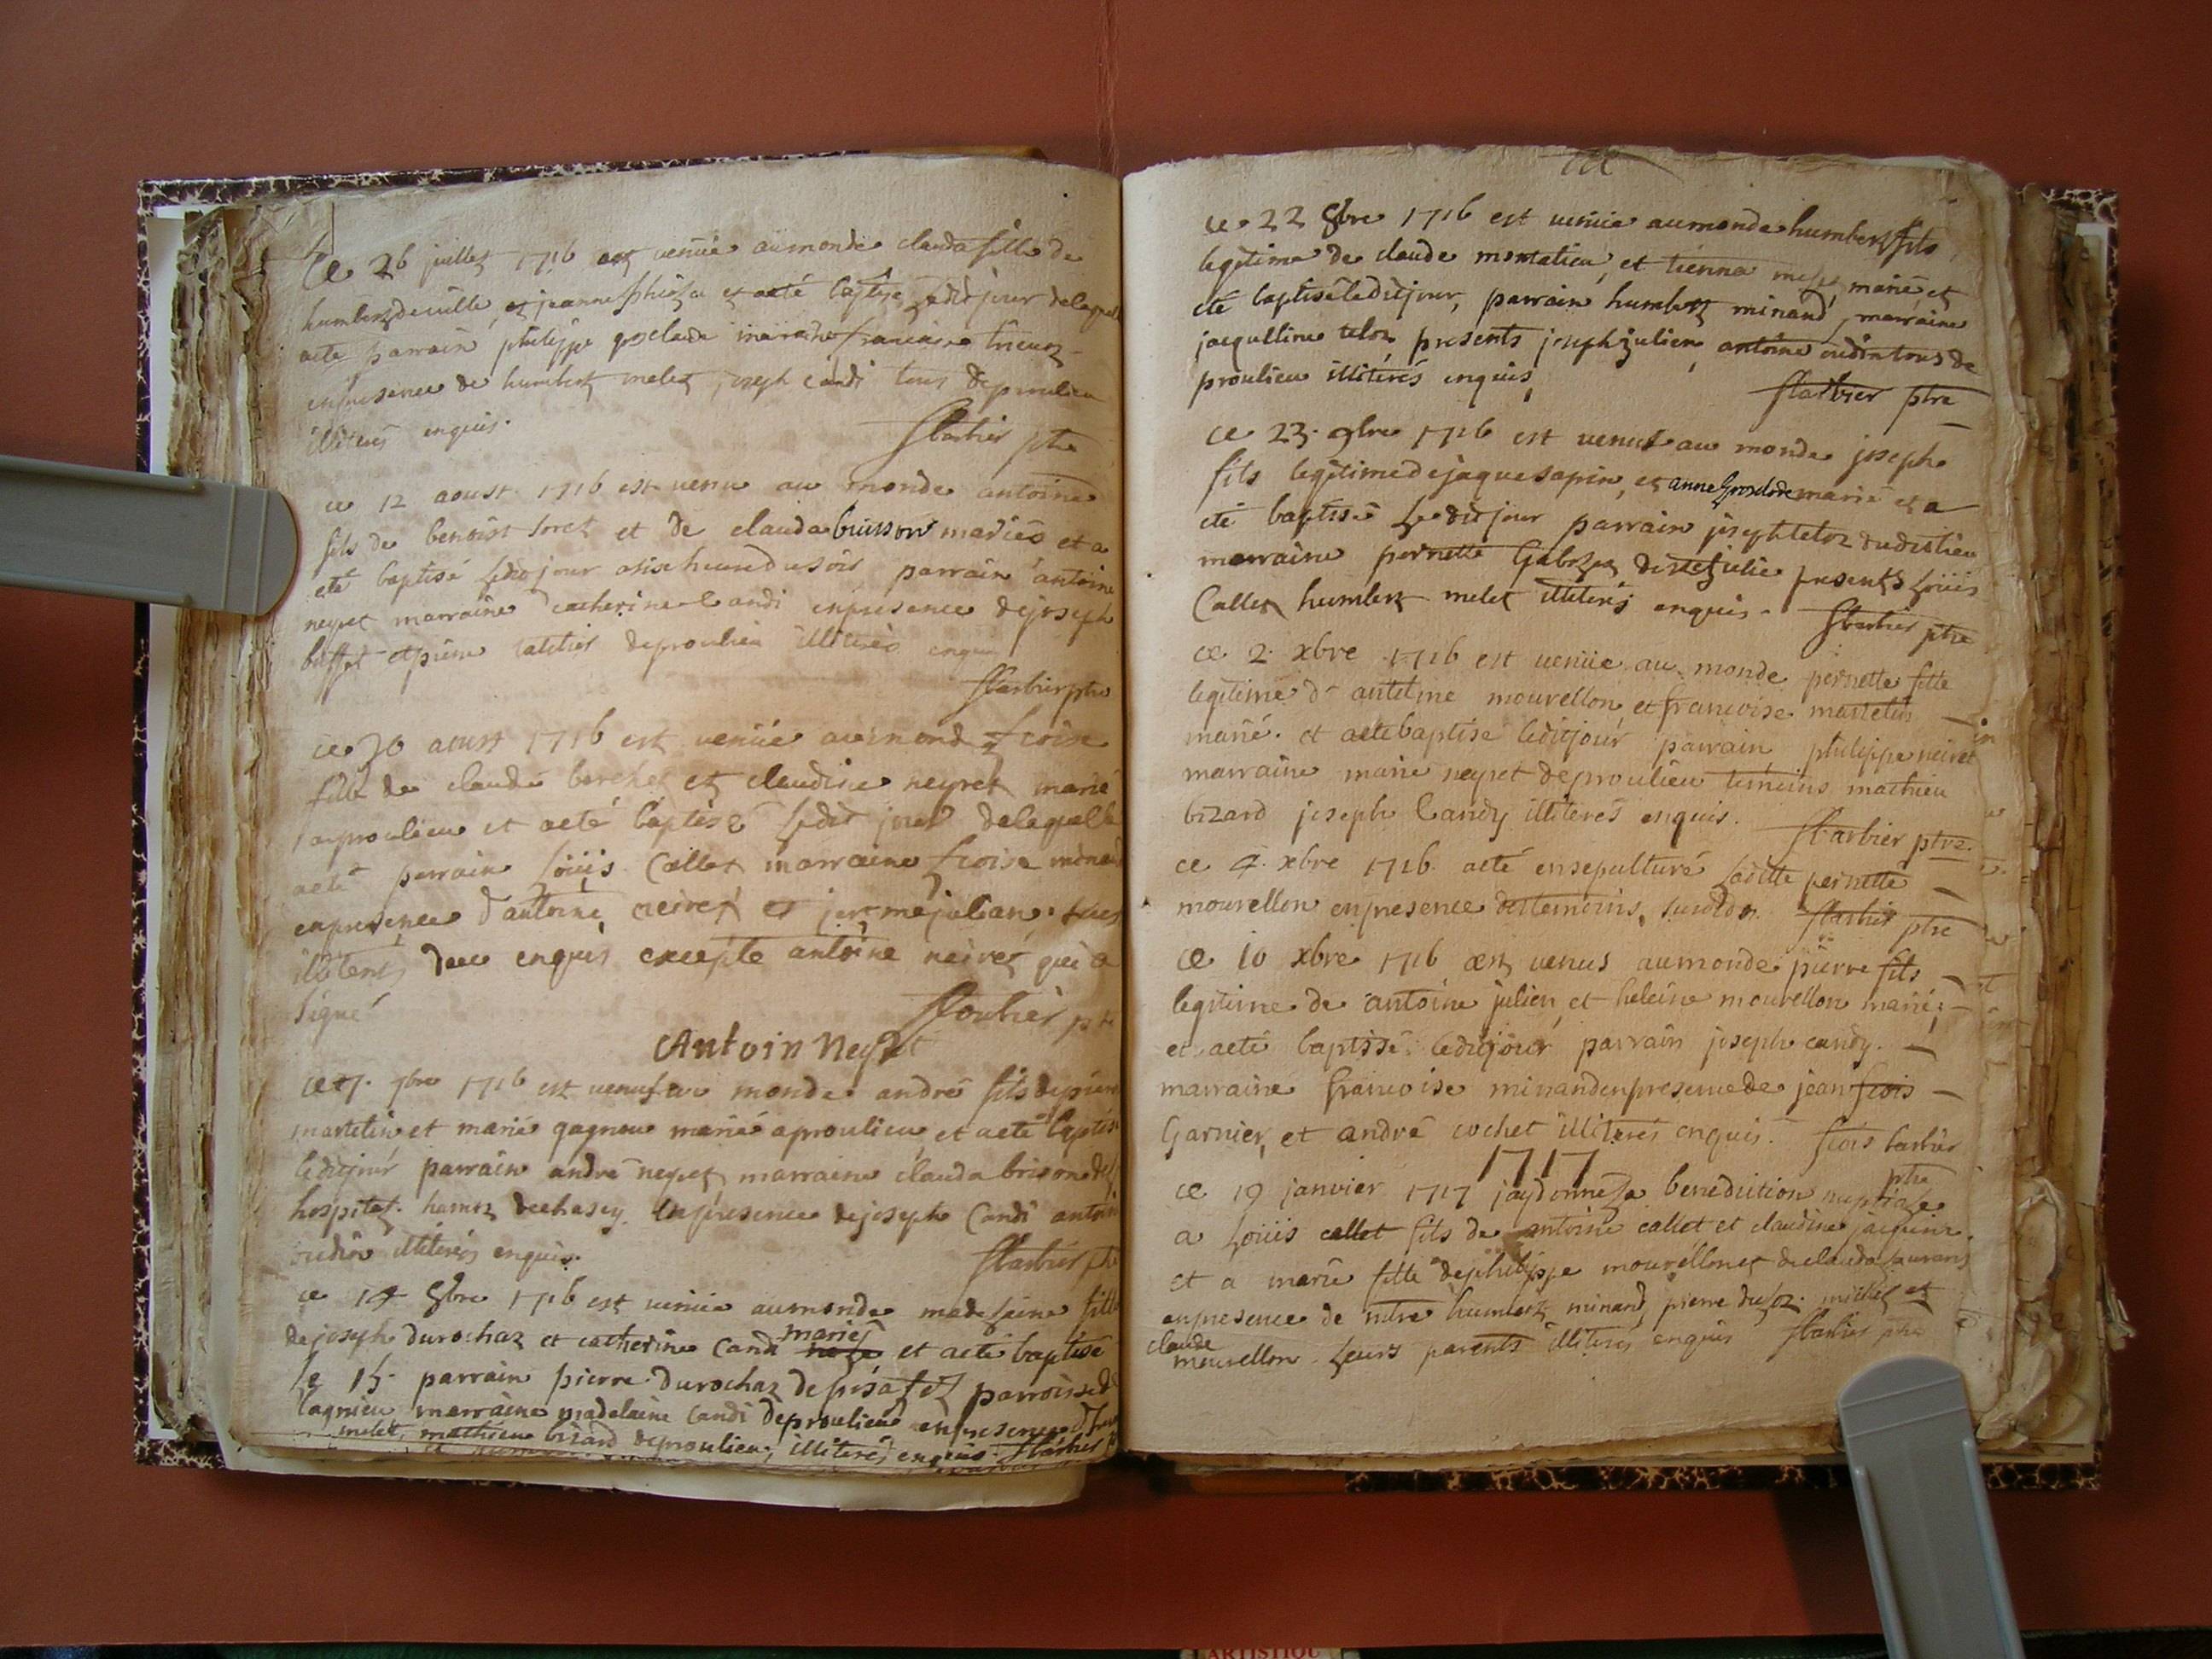 Ce 26 juillet 1716 est venüe au monde clauda fille de
humbert deville et jeanne et a eté baptisé ledit jour de laquel
a eté parrain philippe groclaude marraine francoise
en presence de humbert melet joseph candi tous de proulieu
illiterés enquis.
fbarbier ptre
ce 12 aoust 1716 est venu au monde antoine
fils de benoist soret et de clauda buisson mariés et a
eté baptisé ledit jour a six heure du soir parrain antoine
neyret marraine catherine candi en presence de joseph
buffet et pierre de proulieu illiterés enquis
fbarbier ptre
ce 30 aoust 1716 est venüe au monde fcoise
fille de claude berchet et claudine neyret marié
a proulieu et a eté baptisé ledit jour de laquelle
a eté parrain loüis callet marraine fcoise minand
en presence d'antoine neiret et jerome julian
illiterés enquis excepté antoine neiret qui a
signé
fbarbier ptre
Antoin Neyret
ce 7. 7bre 1716 est venus au monde andré fils de pierre
martelin et marie gagneu marié a proulieu et a eté baptisé
ledit jour parrain andré neyret marraine clauda brison de
hospital. en presence de joseph Candi antoine
oudin illiterés enquis.
fbarbier ptre
ce 14 8bre 1716 est venüe au monde madeleine fille
de joseph durochaz et catherine Candi
mariés
et a eté baptisé
le 15. parrain pierre durochaz de parroisse de
lagnieu marraine madelaine Candi de proulieu en presence
melet, mathieu bizard de proulieu, illiterés enquis. fbarbier
ce 22 8bre 1716 est venüe au monde humbert fils
legitime de claude montalieu, et tienna marié et
eté baptisé ledit jour, parrain humbert minand, marraine
jacqulline teloz presents joseph julien, antoine oudin tous de
proulieu illiterés enquis,
fbarbier ptre
ce 23. 9bre 1716 est venus au monde joseph
fils legitime de jaque sapin, et anne groclode marié et a
eté baptisé ledit jour parrain joseph teloz dudit lieu
marraine pernette presents loüis
Callet humbert melet illiterés enquis. fbarbier ptre
ce 2. xbre 1716 est venüe au monde pernette fille
legitime d'antelme mourellon, et francoise martelin
marié. et a eté baptisé ledit jour parrain philippe neiret
marraine marie neyret de proulieu temoins mathieu
bizard joseph Candy illiterés enquis.
fbarbier ptre.
ce 4. xbre 1716. a eté ensepulturé laditte pernette
mourellon en presence des temoins, susdits. fbarbier ptre
ce 10 xbre 1716 est venus au monde pierre fils
legitime de antoine julien, et heleine mourellon marié;
et a eté baptisé. ledit jour parrain joseph candy.
marraine francoise minand en presence de jean fcois
Garnier, et andré cochet illiterés enquis. fcois barbier
ptre
1717
ce 19 janvier 1717 jay donné la benediction nuptiale
a Loüis callet fils de antoine callet et claudine jacquinz
et a marie fille de philippe mourellon et de clauda
en presence de mtre humbert minand, pierre michel et
claude
mourellon leurs parents illiterés enquis fbarbier ptre
ARTISTIQU